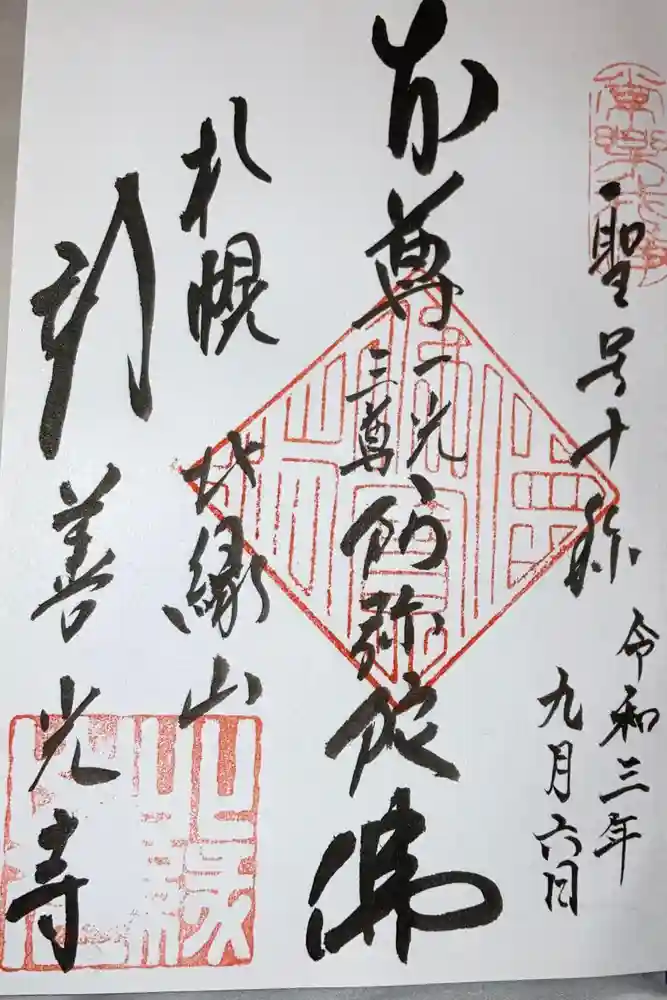 聖号十称
令和三年
九月六日
本尊
一光
三尊
阿弥陀佛
札幌
北縁山
新善光寺